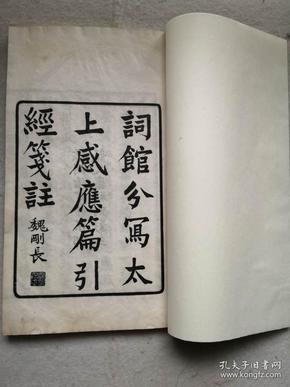 詞館分寫太
上感應篇引
經箋註
魏剛長
孔夫子旧书网
www.kongfz.com